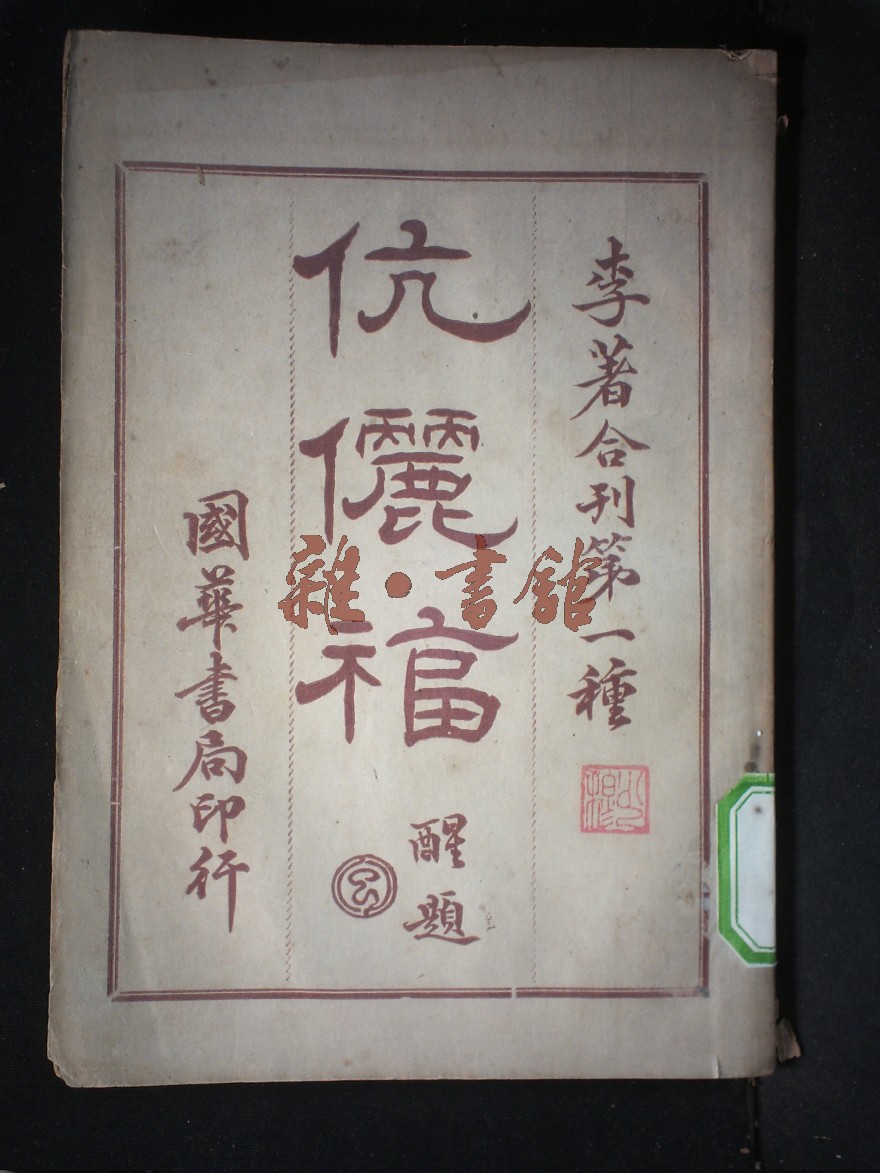 李著合刊第一種
伉儷福
醒題
國華書局印行
雜·書館